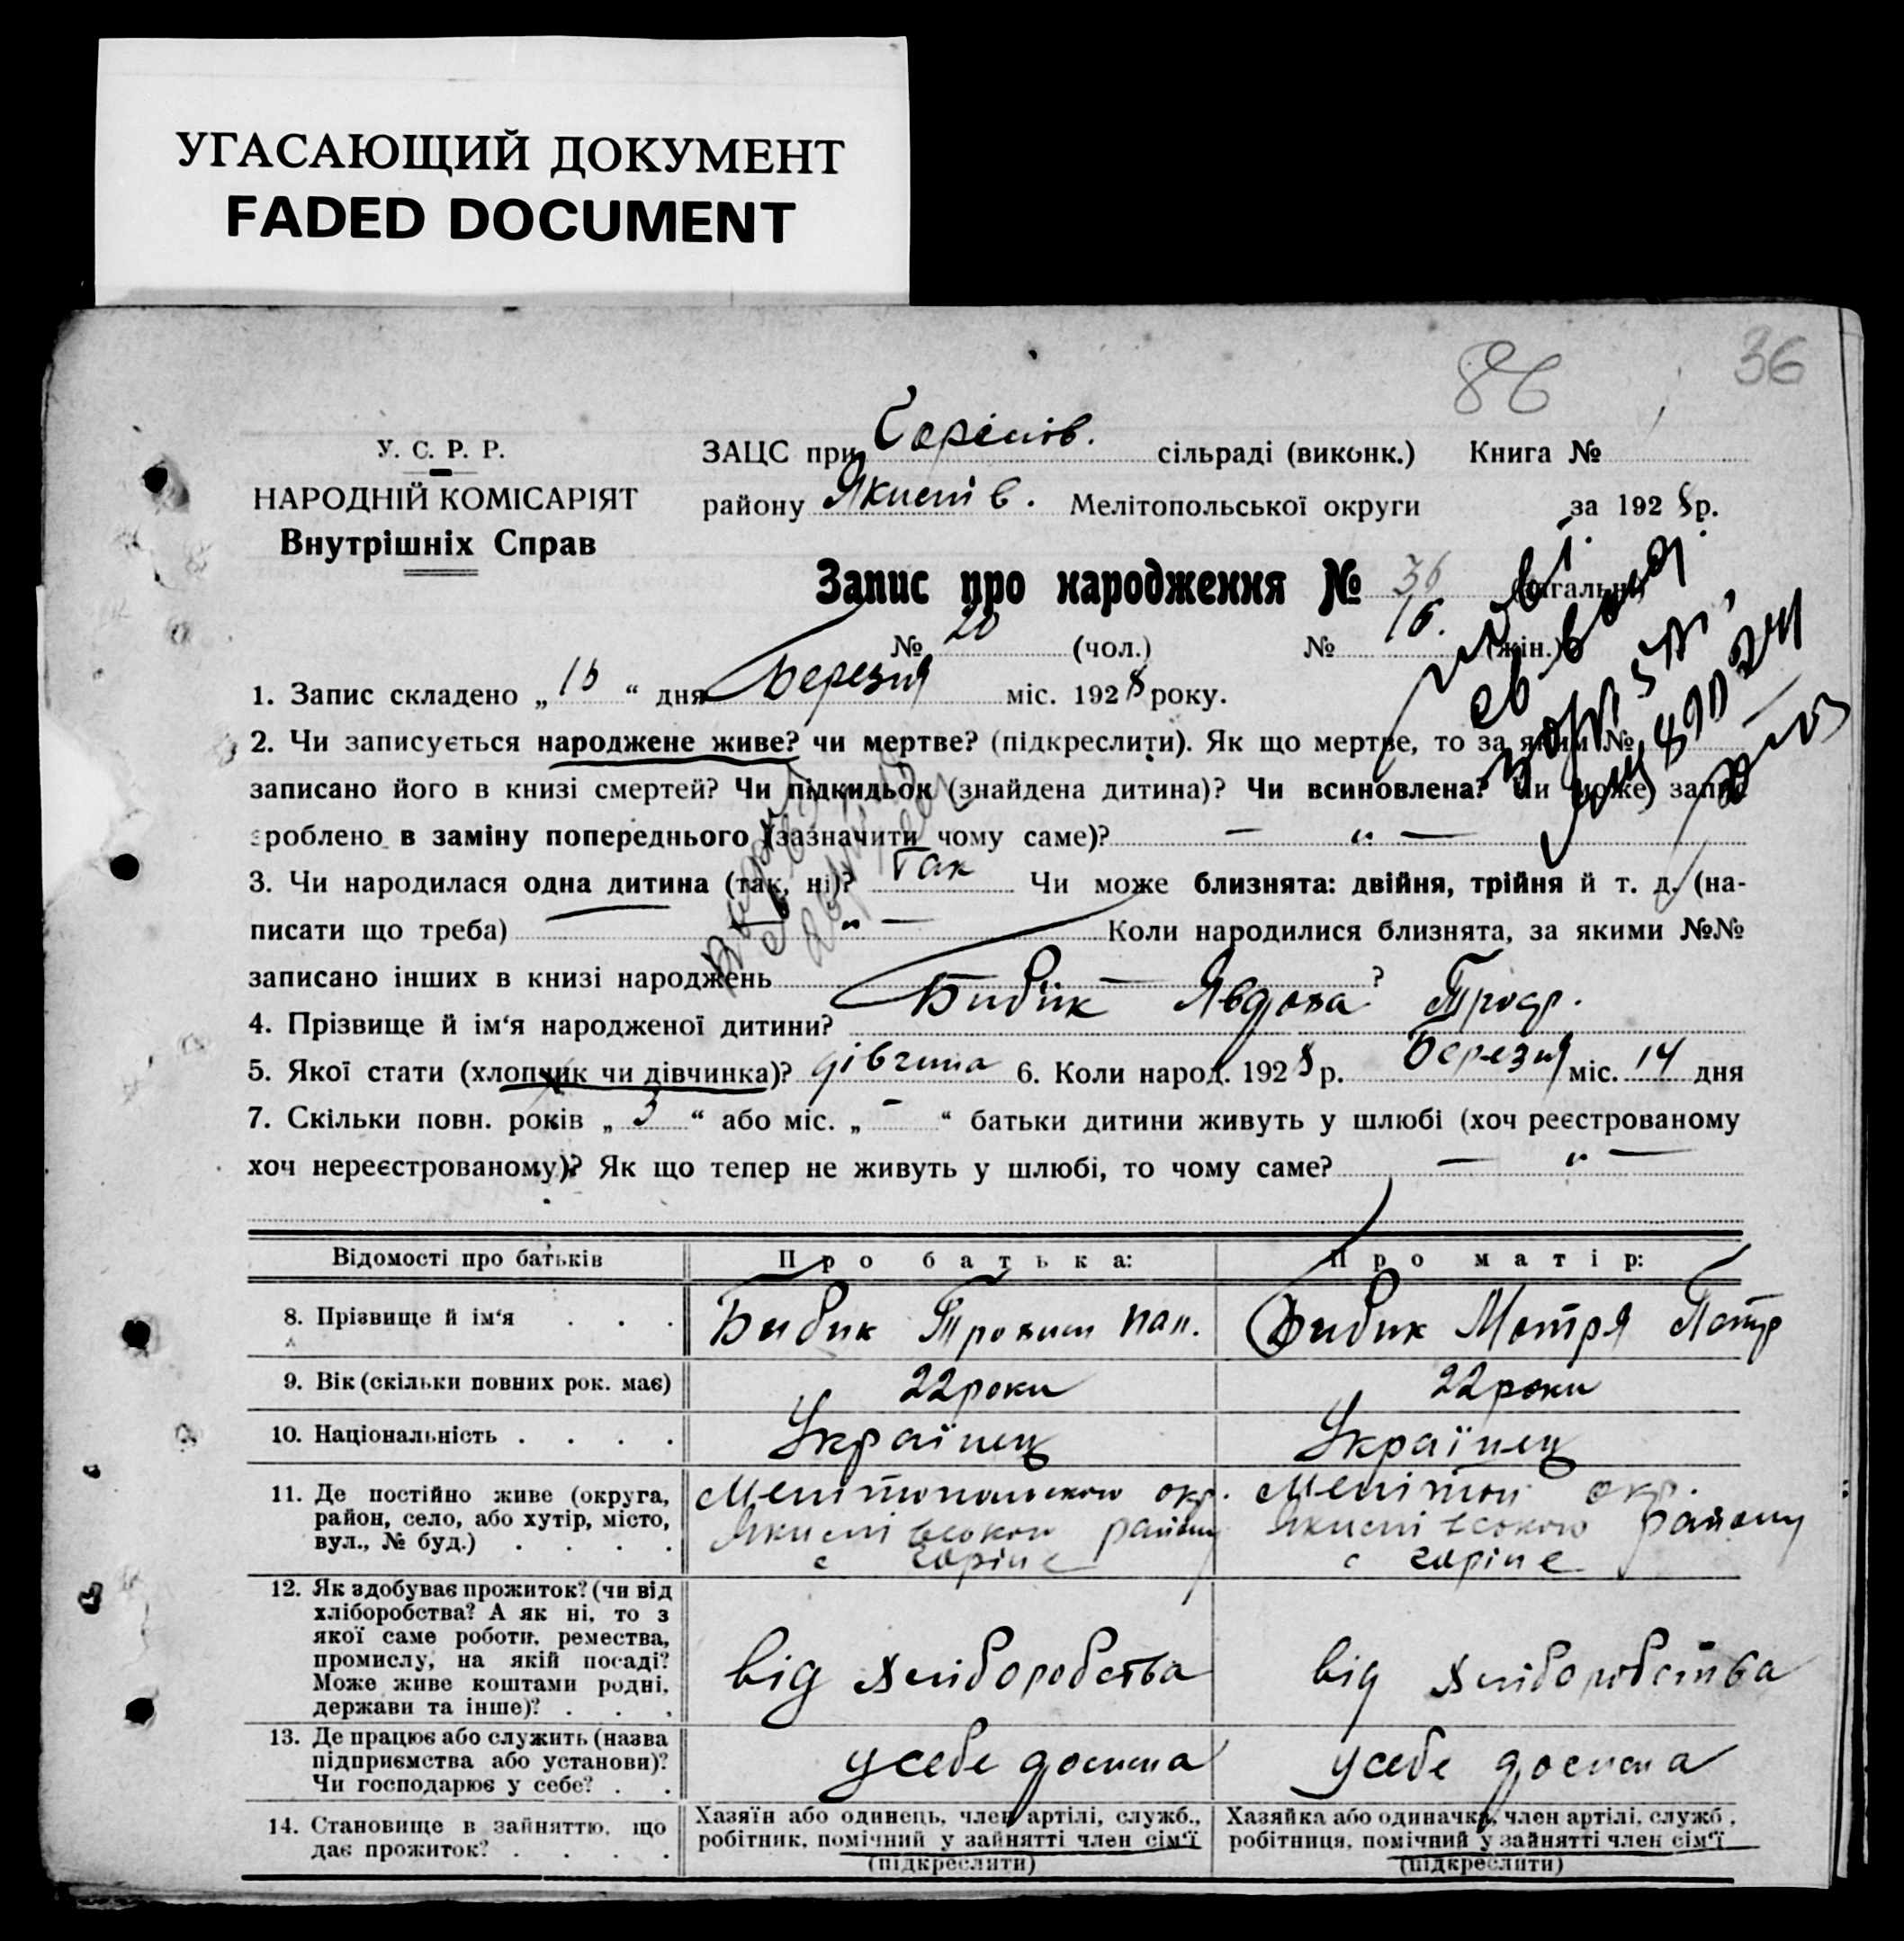 УГАСАЮЩИЙ ДОКУМЕНТ
FADED DOCUMENT
86
36
У. С. Р. Р.
НАРОДНІЙ КОМІСАРІЯТ
Внутрішніх Справ
ЗАЦС при сільраді (виконк.) Книга №
району Якимів. Мелітопольської округи за 1928 р.
Запис про народження № 36 (загальн.)
№ 20 (чол.) № 16. (жін.)
1. Запис складено „ “ дня Березня міс. 1928 року.
2. Чи записується народжене живе? чи мертве? (підкреслити). Як що мертве, то за яким №
записано його в книзі смертей? Чи підкидьок (знайдена дитина)? Чи всиновлена? Чи може запис
зроблено в заміну попереднього (зазначити чому саме)? — „ —
3. Чи народилася одна дитина (так, ні)? Так Чи може близнята: двійня, трійня й т. д. (на-
писати що треба) „ — Коли народилися близнята, за якими №№
записано інших в книзі народжень ?
4. Прізвище й ім‘я народженої дитини? Бибик Явдоха Троф.
5. Якої стати (хлопчик чи дівчинка)? дівчина 6. Коли народ. 1928 р. Березня міс. 14 дня
7. Скільки повн. років „ 3 “ або міс. „ - “ батьки дитини живуть у шлюбі (хоч реєстрованому
хоч нереєстрованому)? Як що тепер не живуть у шлюбі, то чому саме? — „ —
Відомості про батьків Про батька: Про матір:
8. Прізвище й ім‘я . . . Бибик Трохим Бибик Мотря Петр
9. Вік (скільки повних рок. має) 22 роки 22 роки
10. Національність . . . . Українец Українец
11. Де постійно живе (округа, район, село, або хутір, місто, вул., № буд.) . . . .
Мелітопольскою окр. Мелітоп окр.
Якимівською району Якимівською району
с с
12. Як здобуває прожиток? (чи від хліборобства? А як ні, то з якої саме роботи, ремества, промислу, на якій посаді? Може живе коштами родні, держави та інше)? . . .
від хліборобства від хліборобства
13. Де працює або служить (назва підприємства або установи)? Чи господарює у себе? . .
у себе дома у себе дома
14. Становище в зайняттю, що дає прожиток? . . . .
Хазяїн або одинець, член артілі, служб., робітник, помічний у зайнятті член сім‘ї (підкреслити)
Хазяйка або одиначка, член артілі, служб., робітниця, помічний у зайнятті член сім‘ї (підкреслити)